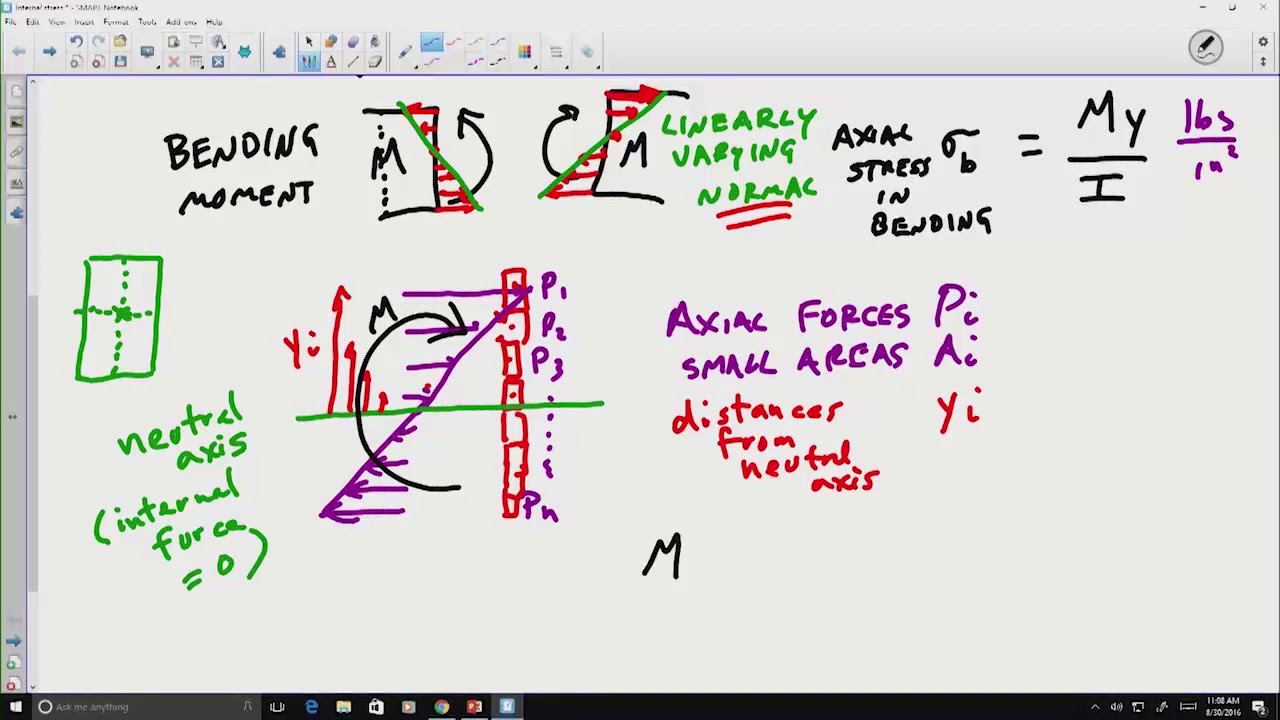 Internal stress * - SMART Notebook
File Edit View Insert Format Tools Add-ons Help
BENDING
MOMENT
M
M
LINEARLY
VARYING
NORMAL
AXIAL
STRESS
IN
BENDING
σb = My
I
lbs
in²
M
yi
P1
P2
P3
Pn
AXIAL FORCES Pi
SMALL AREAS Ai
distances yi
from
neutral
axis
neutral
axis
(internal
force
= 0)
M
Ask me anything
11:08 AM
8/30/2016